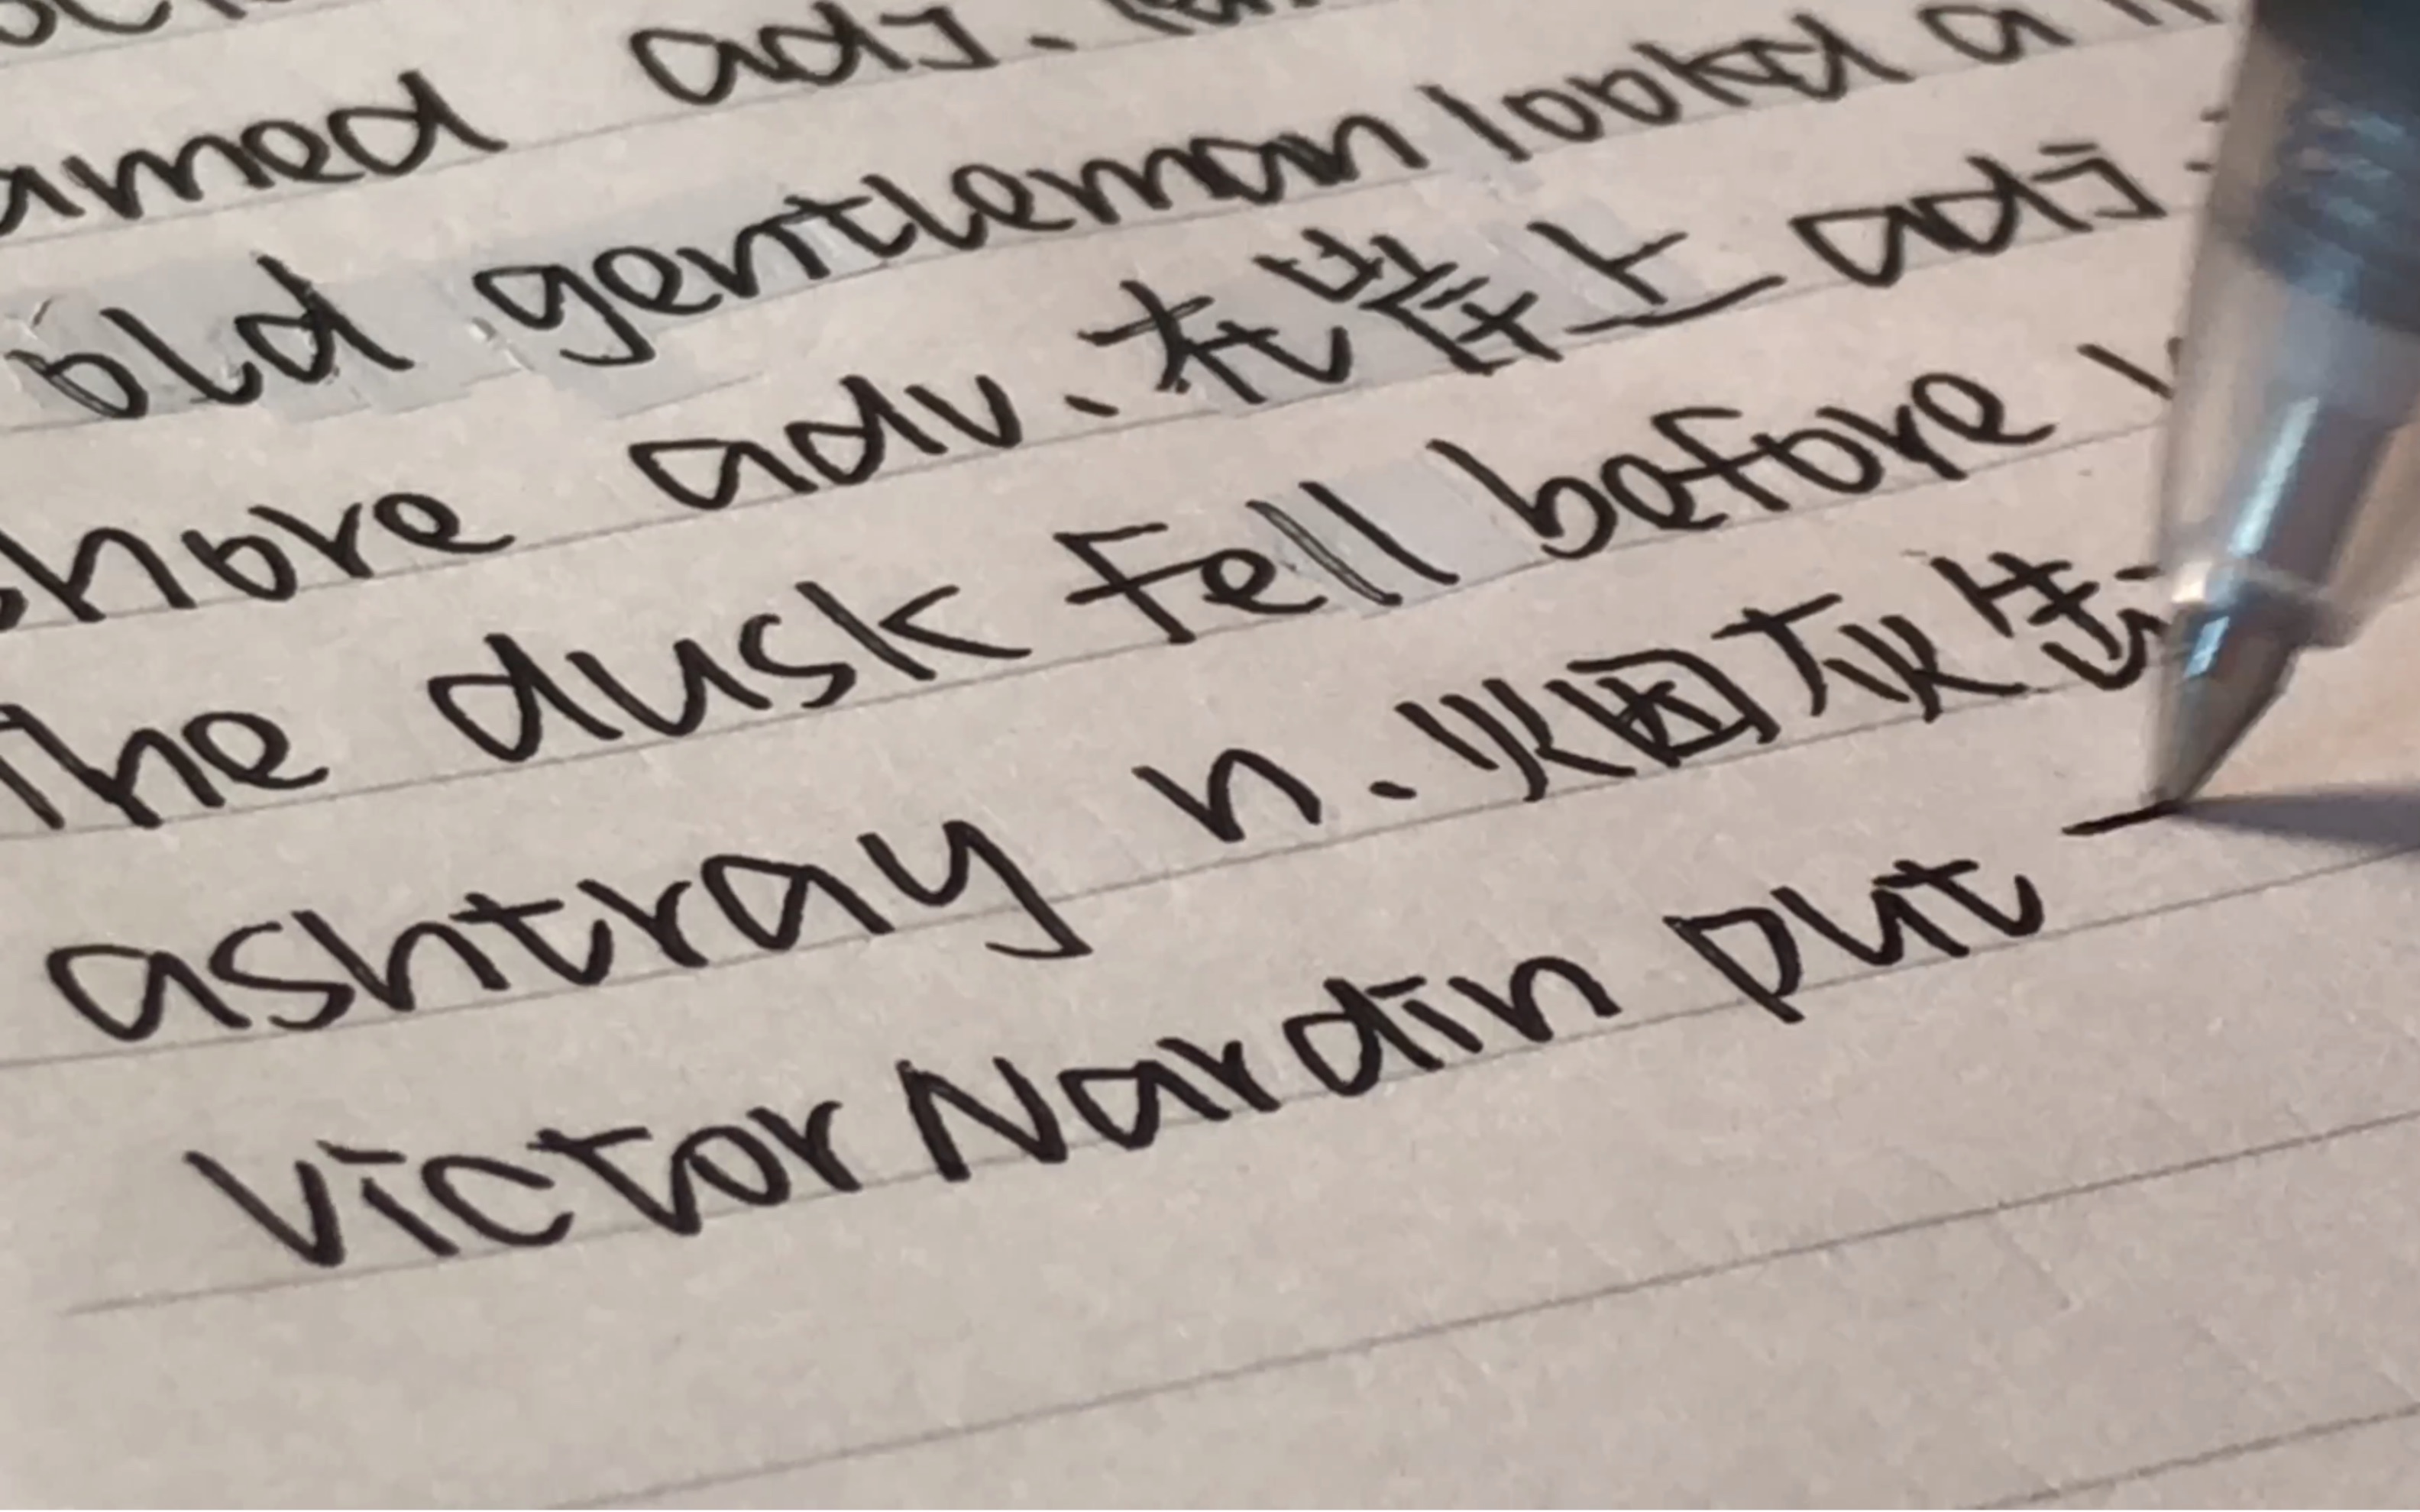 amed adj.
old gentleman looked a
hore adv. 在岸上 adj
the dusk fell before
ashtray n. 烟灰缸
Victor Nardin put